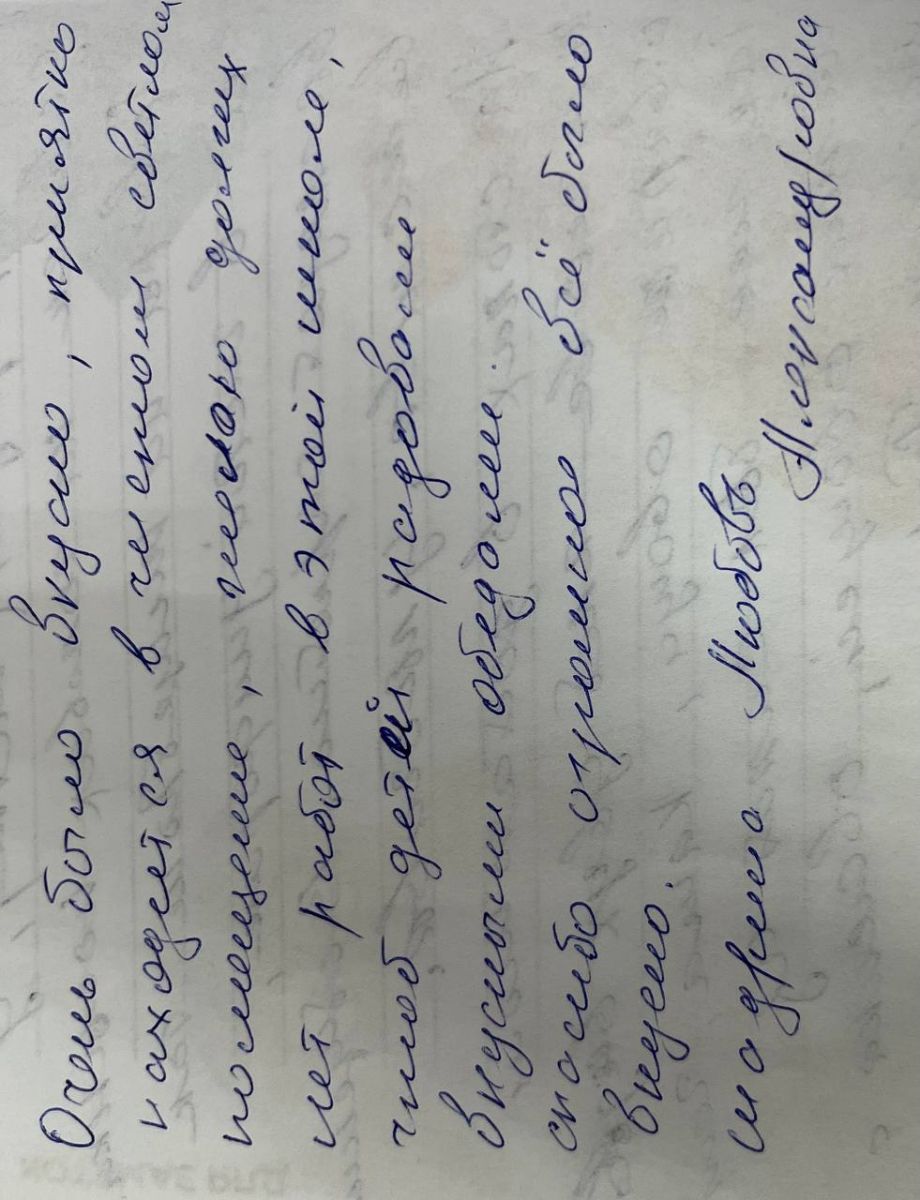 Очень было вкусно, приятно
находется в чисеном светлом
помещение, желаю долгих
лет работ в этой школе,
чтоб детей радовали
вкусными обедоми.
спасибо огромное всё было
вкусно.
Любовь Александровна